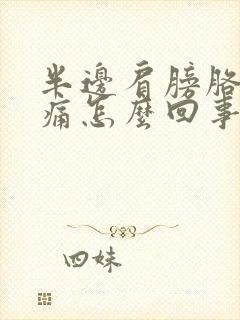 半邊肩膀胳
痛怎麼回事
四妹